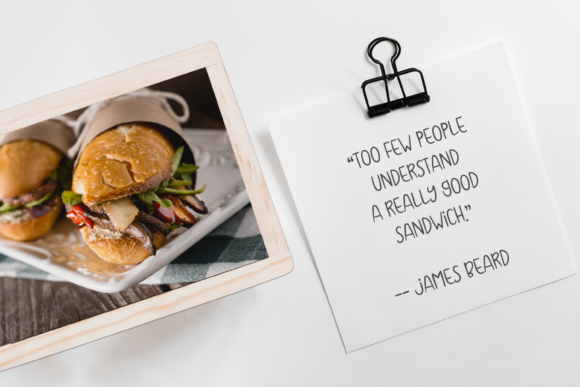 “TOO FEW PEOPLE
UNDERSTAND
A REALLY GOOD
SANDWICH.”
-- JAMES BEARD